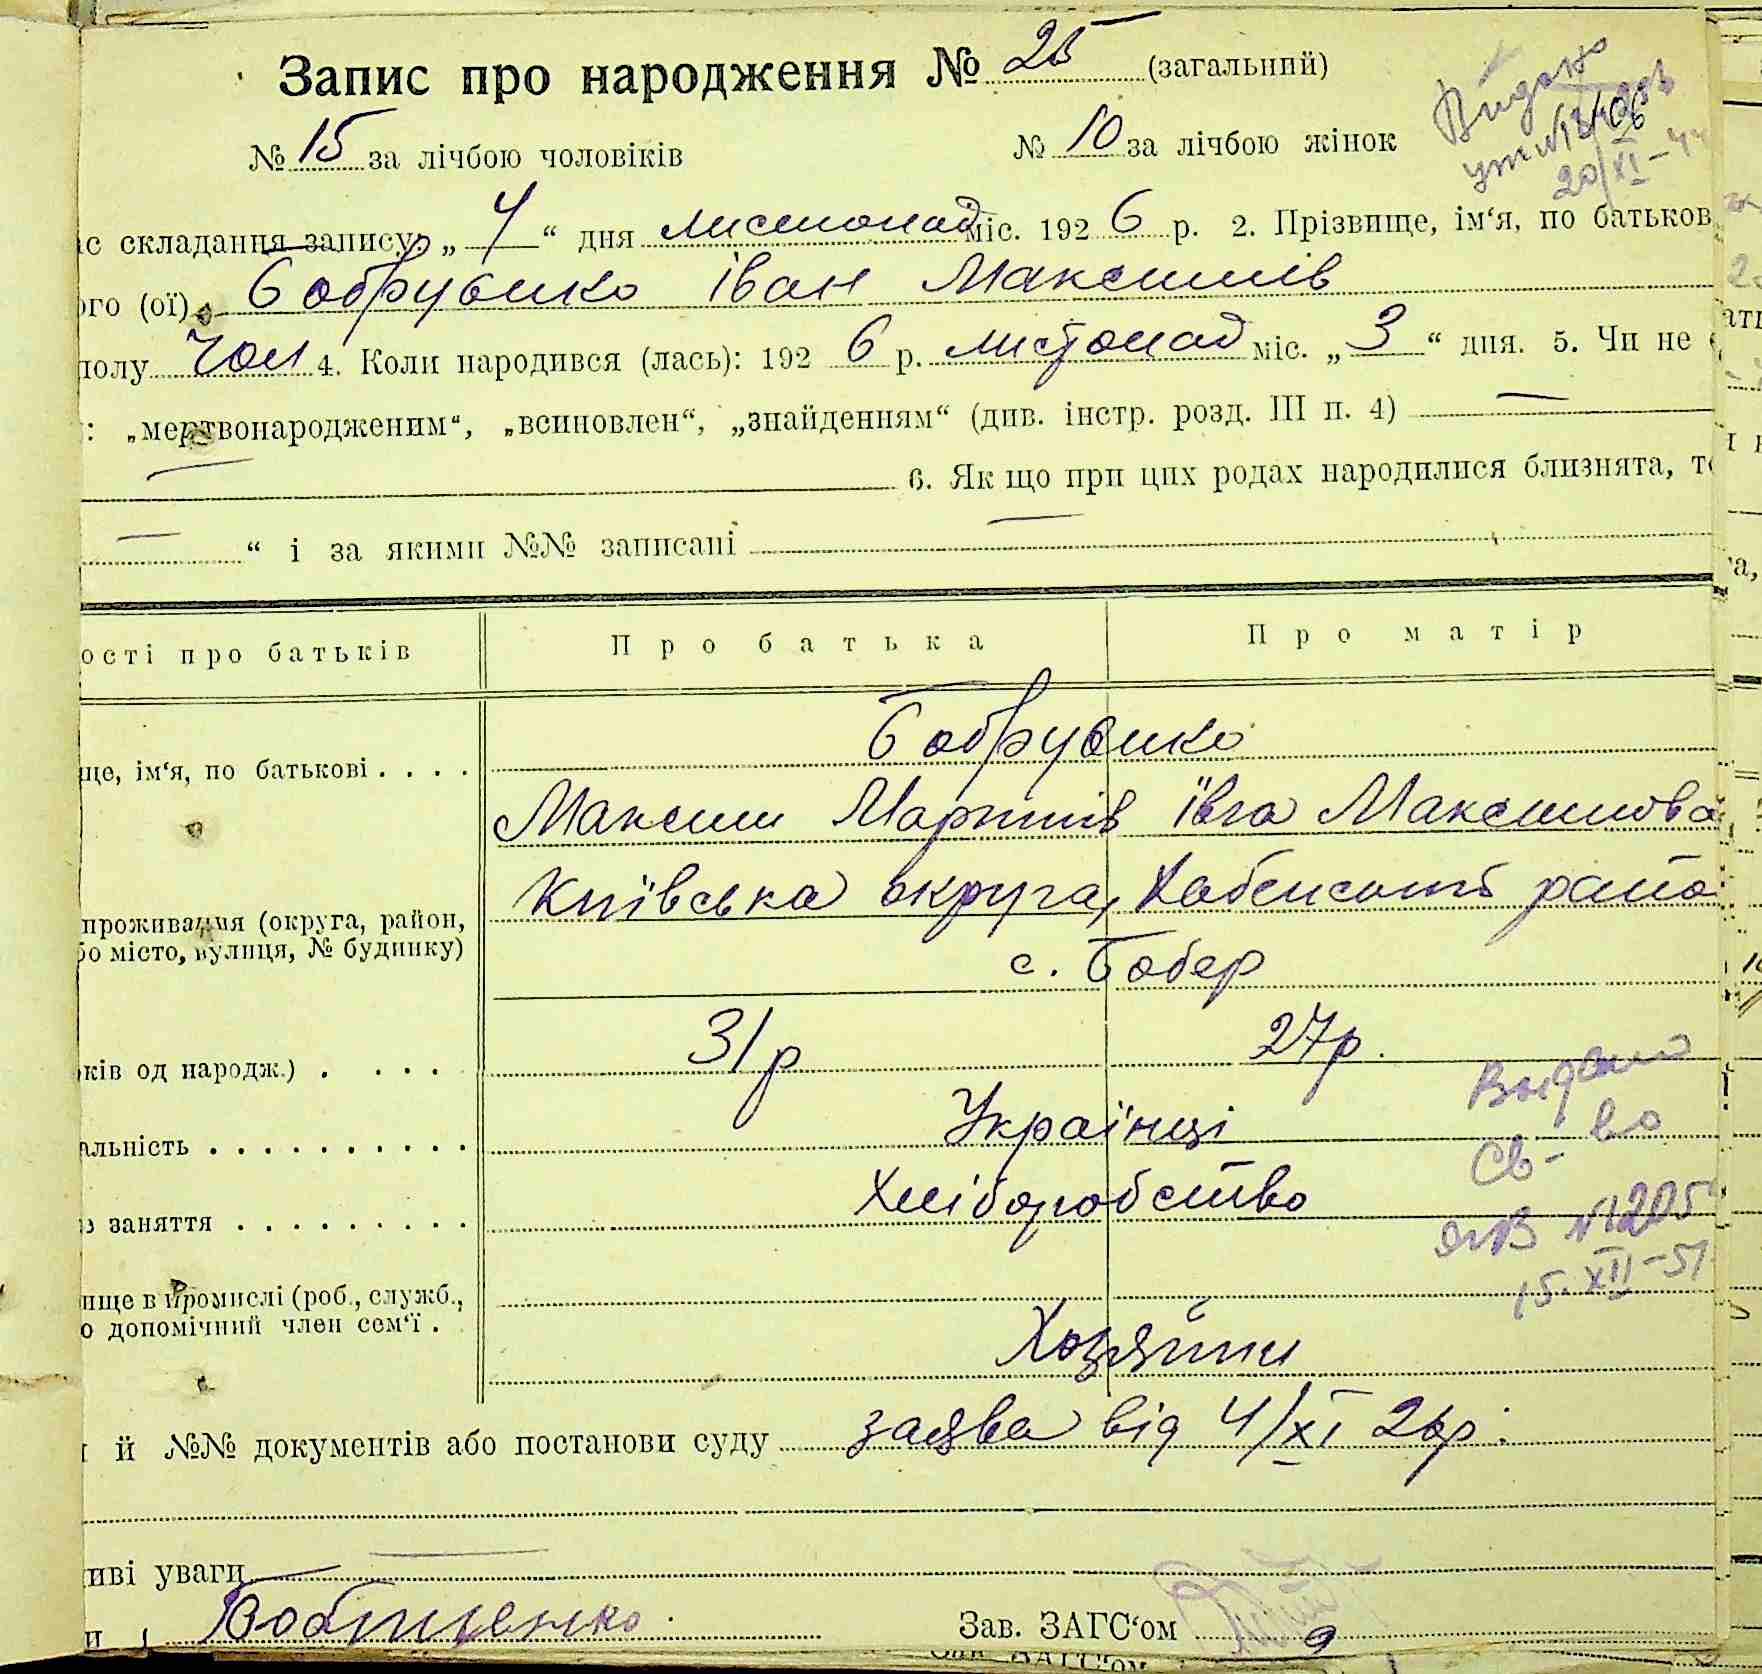 Запис про народження № 25 (загальний)
№ 15 за лічбою чоловіків № 10 за лічбою жінок
Видано
20/XI-44
ас складання запису „ 4 “ дня листопад міс. 192 6 р. 2. Прізвище, ім‘я, по батьков
ого (ої) Бобрувико Іван Максимів
полу чол 4. Коли народився (лась): 192 6 р. листопад міс. „ 3 “ дня. 5. Чи не є
: „мертвонародженим“, „всиновлен“, „знайденням“ (див. інстр. розд. III п. 4) —
— 6. Як що при цих родах народилися близнята, то
— “ і за якими №№ записані —
ості про батьків Про батька Про матір
Бобрувико
ще, ім‘я, по батькові . . . .
Максим Мартинів Ївга Максимова
Київська округа, Хабенський район
проживання (округа, район,
бо місто, вулиця, № будинку)
с. Бобер
оків од народж.) . . . . 31р 27р.
альність . . . . . . . . . . Українці
о заняття . . . . . . . . . Хліборобство
Выдано
Св-во
№ 205
15.XII-51
ище в промислі (роб., служб.,
о допомічний член сем‘ї .
Хозяїни
і й №№ документів або постанови суду заява від 4/XI 26р.
иві уваги —
и Бобрищенко Зав. ЗАГС‘ом